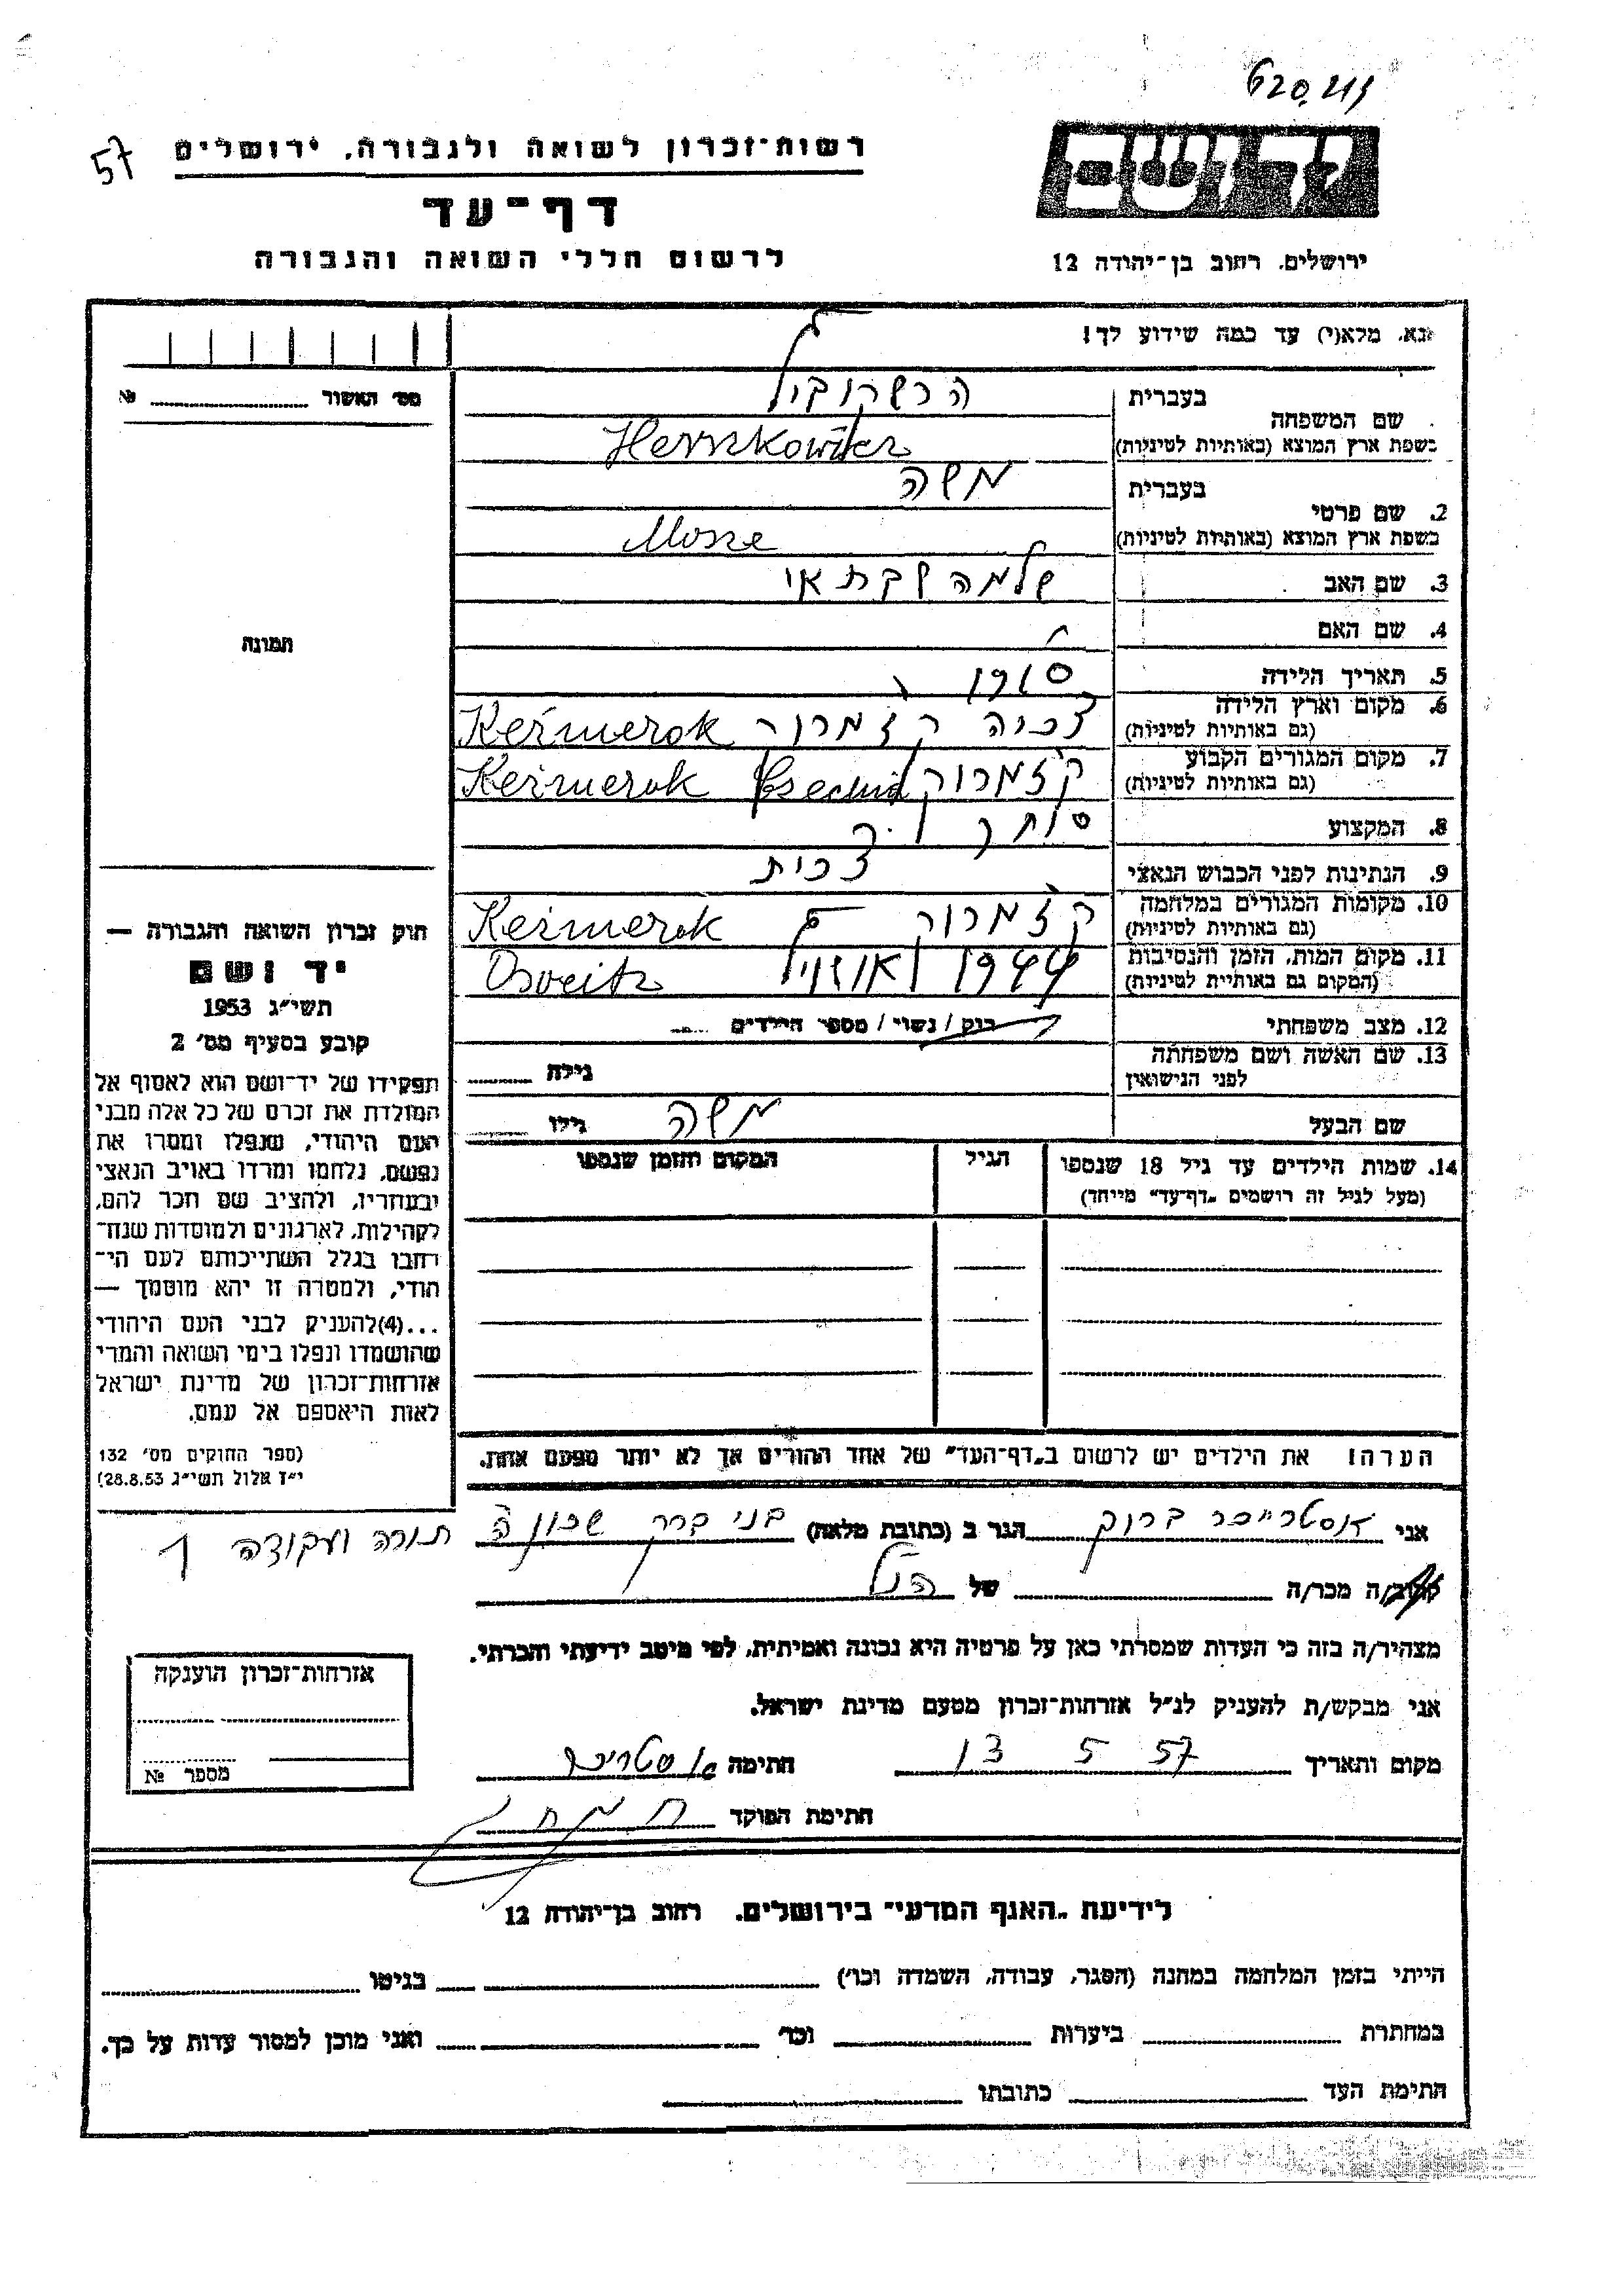 57
רשות־זכרון לשואה ולגבורה, ירושלים
דף־עד
לרשום חללי השואה והגבורה
ירושלים, רחוב בן־יהודה 12
נא, מלא(י) עד כמה שידוע לך!
מס׳ האשור №
תמונה
שם המשפחה בעברית
בשפת ארץ המוצא (באותיות לטיניות) Herszkowicz
2. שם פרטי בעברית משה
בשפת ארץ המוצא (באותיות לטיניות) Mosze
3. שם האב שלמה שבתאי
4. שם האם
5. תאריך הלידה 1910
6. מקום וארץ הלידה
(גם באותיות לטיניות) Keźmerok
7. מקום המגורים הקבוע קזמרוק
(גם באותיות לטיניות) Keźmerok
8. המקצוע סוחר
9. הנתינות לפני הכבוש הנאצי צכית
10. מקומות המגורים במלחמה קזמרוק
(גם באותיות לטיניות) Keźmerok
11. מקום המות, הזמן והנסיבות 1944
(המקום גם באותיית לטיניות) Osveitz
12. מצב משפחתי רוק / נשוי / מספר הילדים
13. שם האשה ושם משפחתה
לפני הנישואין גילה
שם הבעל משה גילו
14. שמות הילדים עד גיל 18 שנספו הגיל המקום והזמן שנספו
(מעל לגיל זה רושמים „דף־עד״ מייחד)
הערה! את הילדים יש לרשום ב„דף־העד״ של אחד ההורים אך לא יותר מפעם אחת.
חוק זכרון השואה והגבורה —
יד ושם
תשי״ג 1953
קובע בסעיף מס׳ 2
תפקידו של יד־ושם הוא לאסוף אל
המולדת את זכרם של כל אלה מבני
העם היהודי, שנפלו ומסרו את
נפשם, נלחמו ומרדו באויב הנאצי
ובעוזריו, ולהציב שם וזכר להם,
לקהילות, לארגונים ולמוסדות שנח־
רחבו בגלל השתייכותם לעם הי־
הודי, ולמטרה זו יהא מוסמך —
...(4)להעניק לבני העם היהודי
שהושמדו ונפלו בימי השואה והמרי
אזרחות־זכרון של מדינת ישראל
לאות היאספם אל עמם.
(ספר החוקים מס׳ 132
י״ז אלול תשי״ג 28.8.53)
אני אסטרייכר ברוך הגר ב (כתובת מלאה) בני ברק שכונת תורה ועבודה 1
קרוב/ה מכר/ה של הנ״ל
מצהיר/ה בזה כי העדות שמסרתי כאן על פרטיה היא נכונה ואמיתית, לפי מיטב ידיעתי והכרתי.
אני מבקש/ת להעניק לנ״ל אזרחות־זכרון מטעם מדינת ישראל.
מקום ותאריך 13 5 57 חתימה
חתימת הפוקד
אזרחות־זכרון הוענקה
מספר №
לידיעת „האגף המדעי״ בירושלים, רחוב בן־יהודה 12
הייתי בזמן המלחמה במחנה (הסגר, עבודה, השמדה וכו׳) בגיטו
במחתרת ביערות וכו׳ ואני מוכן למסור עדות על כך.
חתימת העד כתובתו